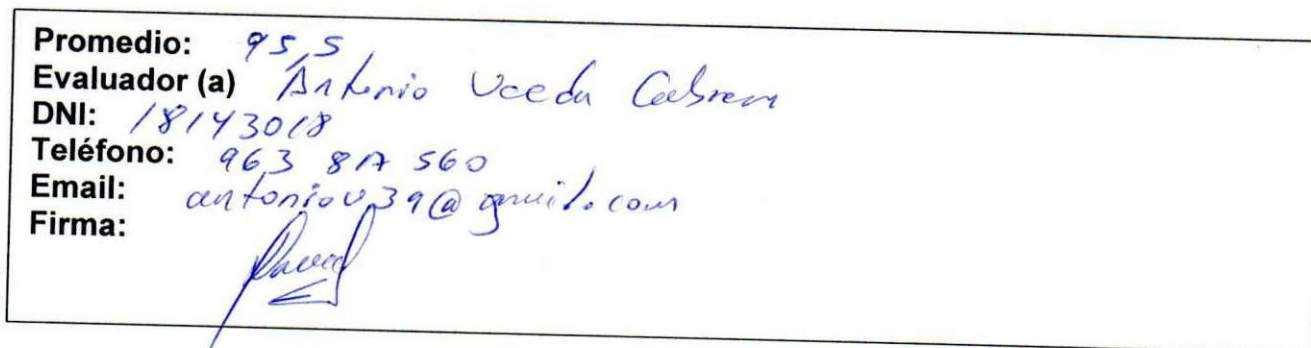 Promedio: 95,5
Evaluador (a) Antonio Uceda Cabrera
DNI: 18143018
Teléfono: 963 817 560
Email: antoniou39@gmail.com
Firma: